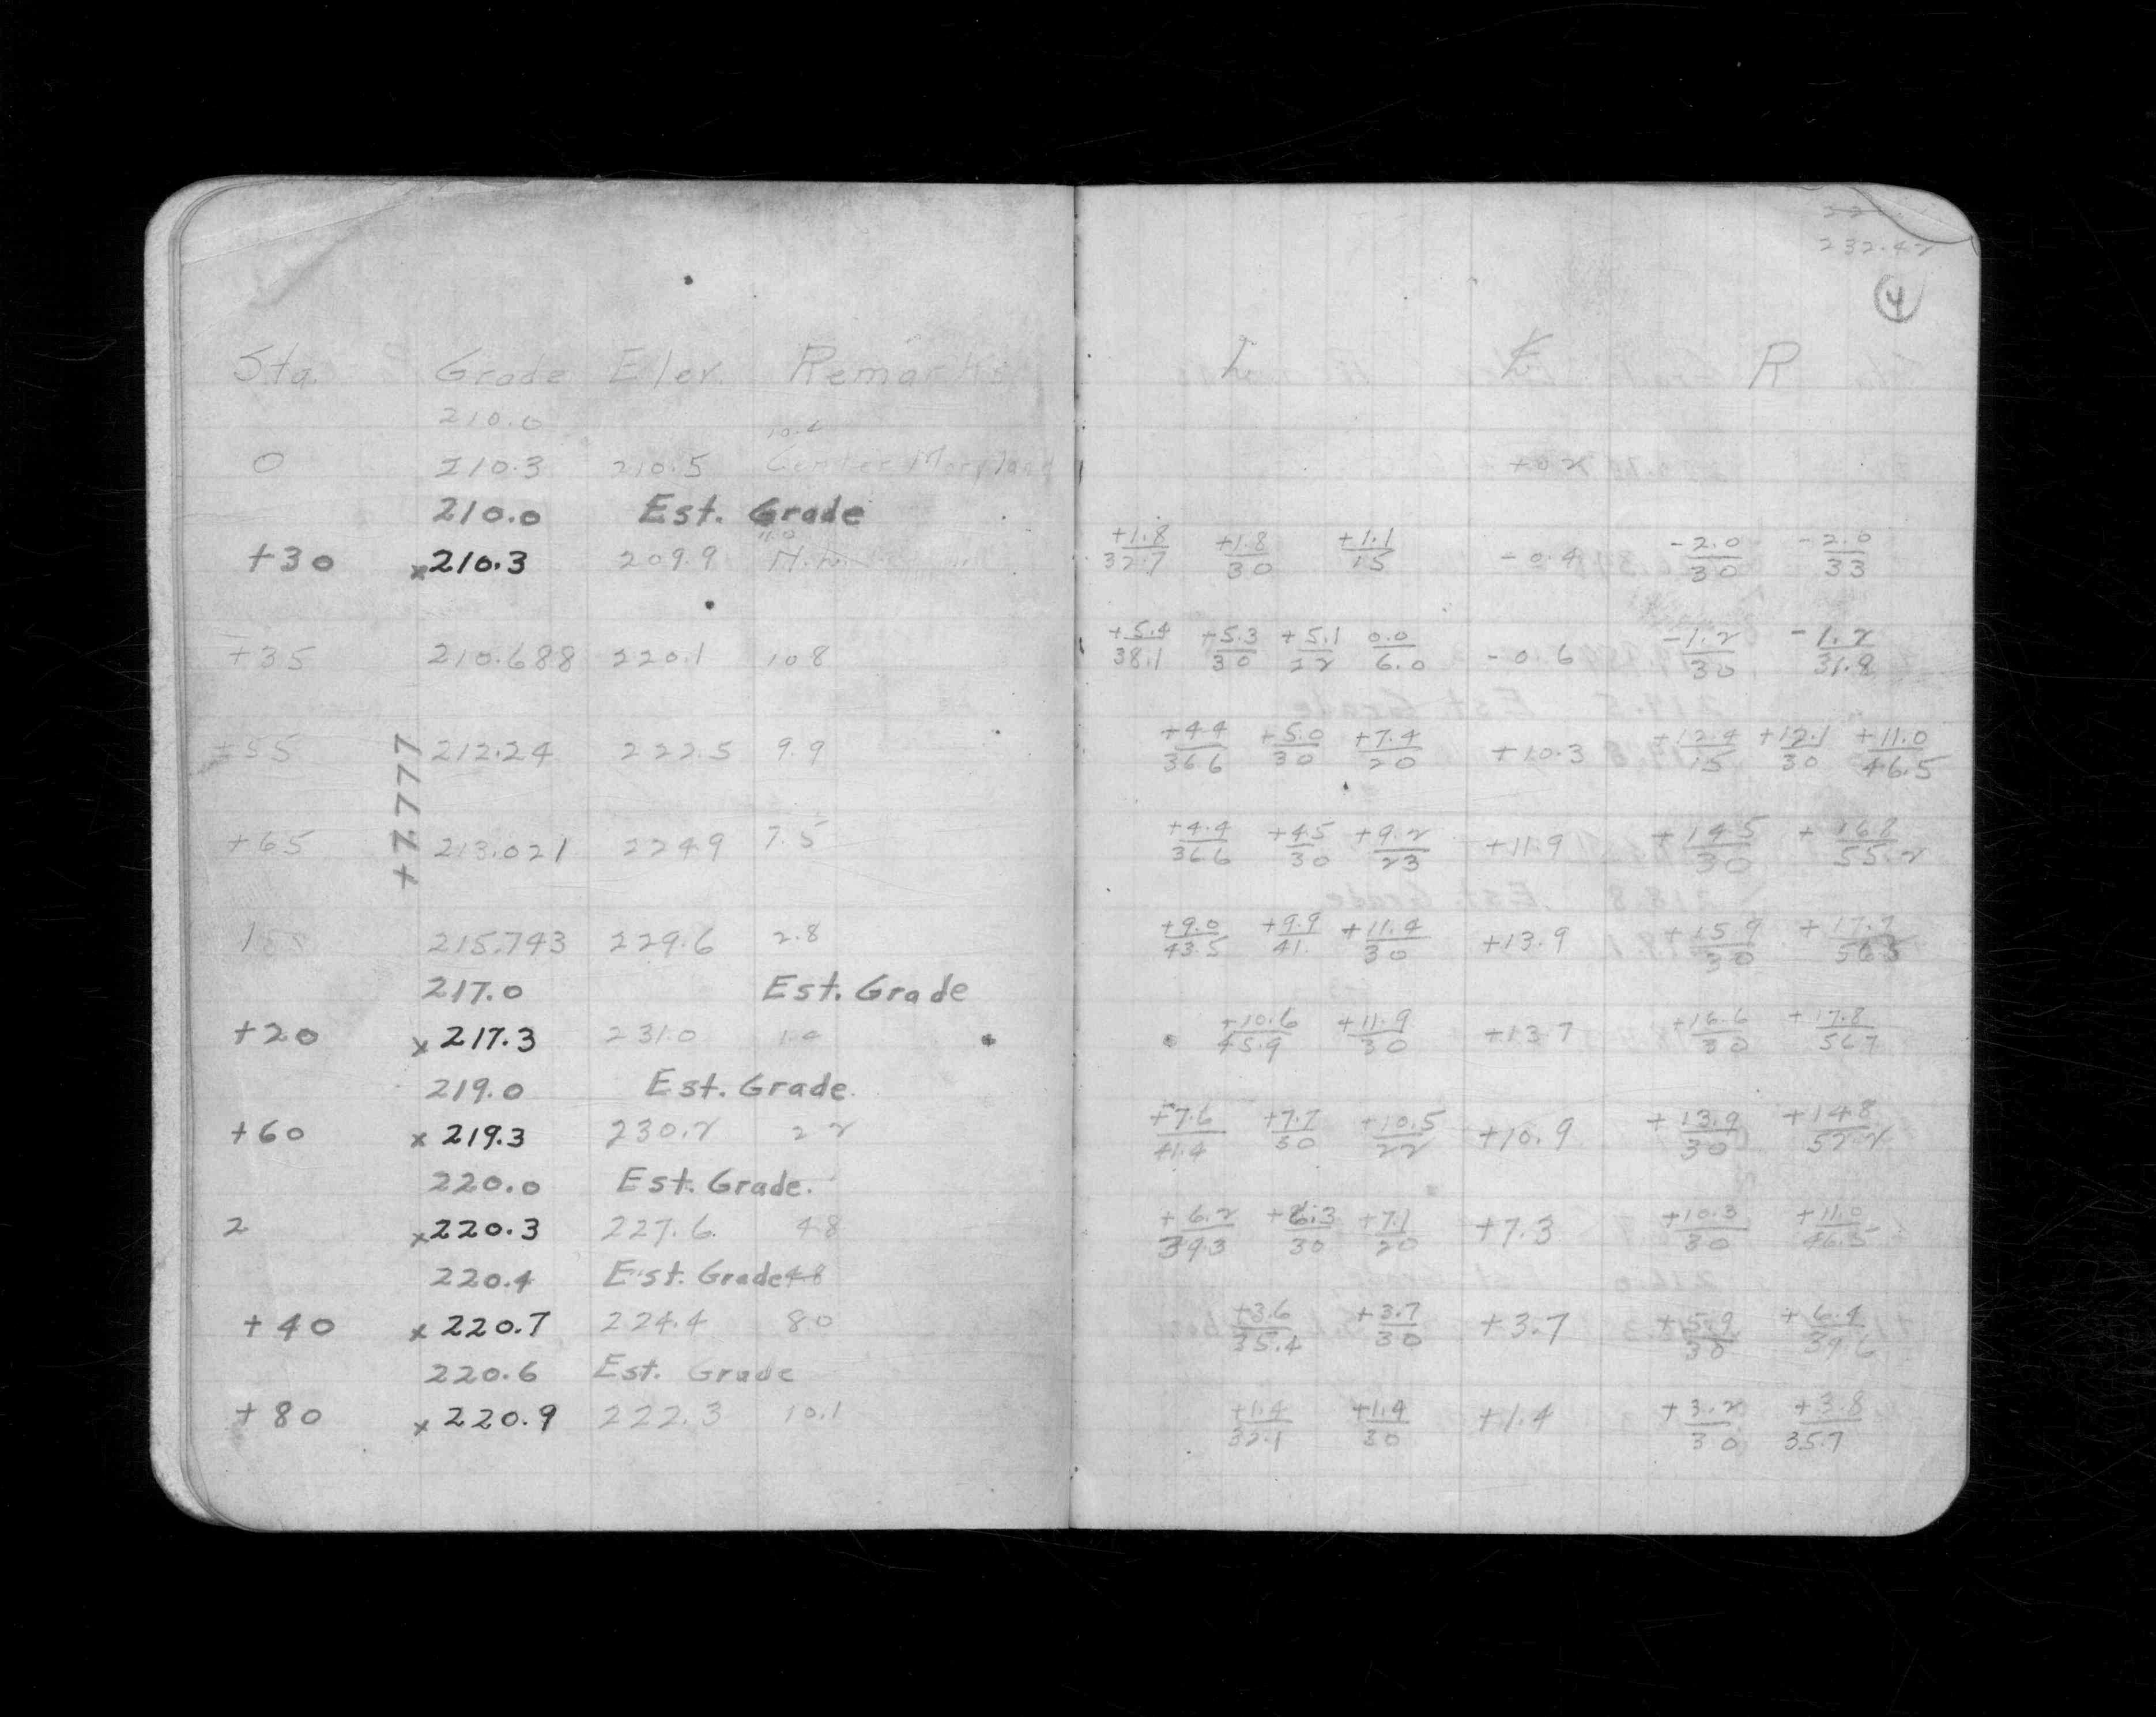 232.42
4
Sta. Grade Elev. Remarks
210.0
10.4
0 210.3 210.5 Center Maryland
210.0 Est. Grade
11.0
+30 x210.3 209.9
+35 210.688 220.1 10.8
+55 212.24 222.5 9.9
+7.777
+65 213.021 224.9 7.5
1 215.743 229.6 2.8
217.0 Est. Grade
+20 x 217.3 231.0 1.4
219.0 Est. Grade.
+60 x 219.3 230.2 2 2
220.0 Est. Grade.
2 x220.3 227.6. 4.8
220.4 Est. Grade 4.8
+40 x 220.7 224.4 8.0
220.6 Est. Grade
+80 x 220.9 222.3 10.1
L ℄ R
+0.2
+1.8/32.7 +1.8/30 +1.1/15 -0.4 -2.0/30 -2.0/33
+5.4/38.1 +5.3/30 +5.1/22 0.0/6.0 -0.6 -1.2/30 -1.2/31.8
+4.4/36.6 +5.0/30 +7.4/20 +10.3 +12.4/15 +12.1/30 +11.0/46.5
+4.4/36.6 +4.5/30 +9.2/23 +11.9 +14.5/30 +16.8/55.2
+9.0/43.5 +9.9/41. +11.4/30 +13.9 +15.9/30 +17.9/56.5
+10.6/45.9 +11.9/30 +13.7 +16.6/30 +17.8/56.7
+7.6/41.4 +7.7/30 +10.5/22 +10.9 +13.9/30 +14.8/52.2
+6.2/39.3 +6.3/30 +7.1/20 +7.3 +10.3/30 +11.0/46.5
+3.6/35.4 +3.7/30 +3.7 +5.9/30 +6.4/39.6
+1.4/32.1 +1.4/30 +1.4 +3.2/30 +3.8/35.7